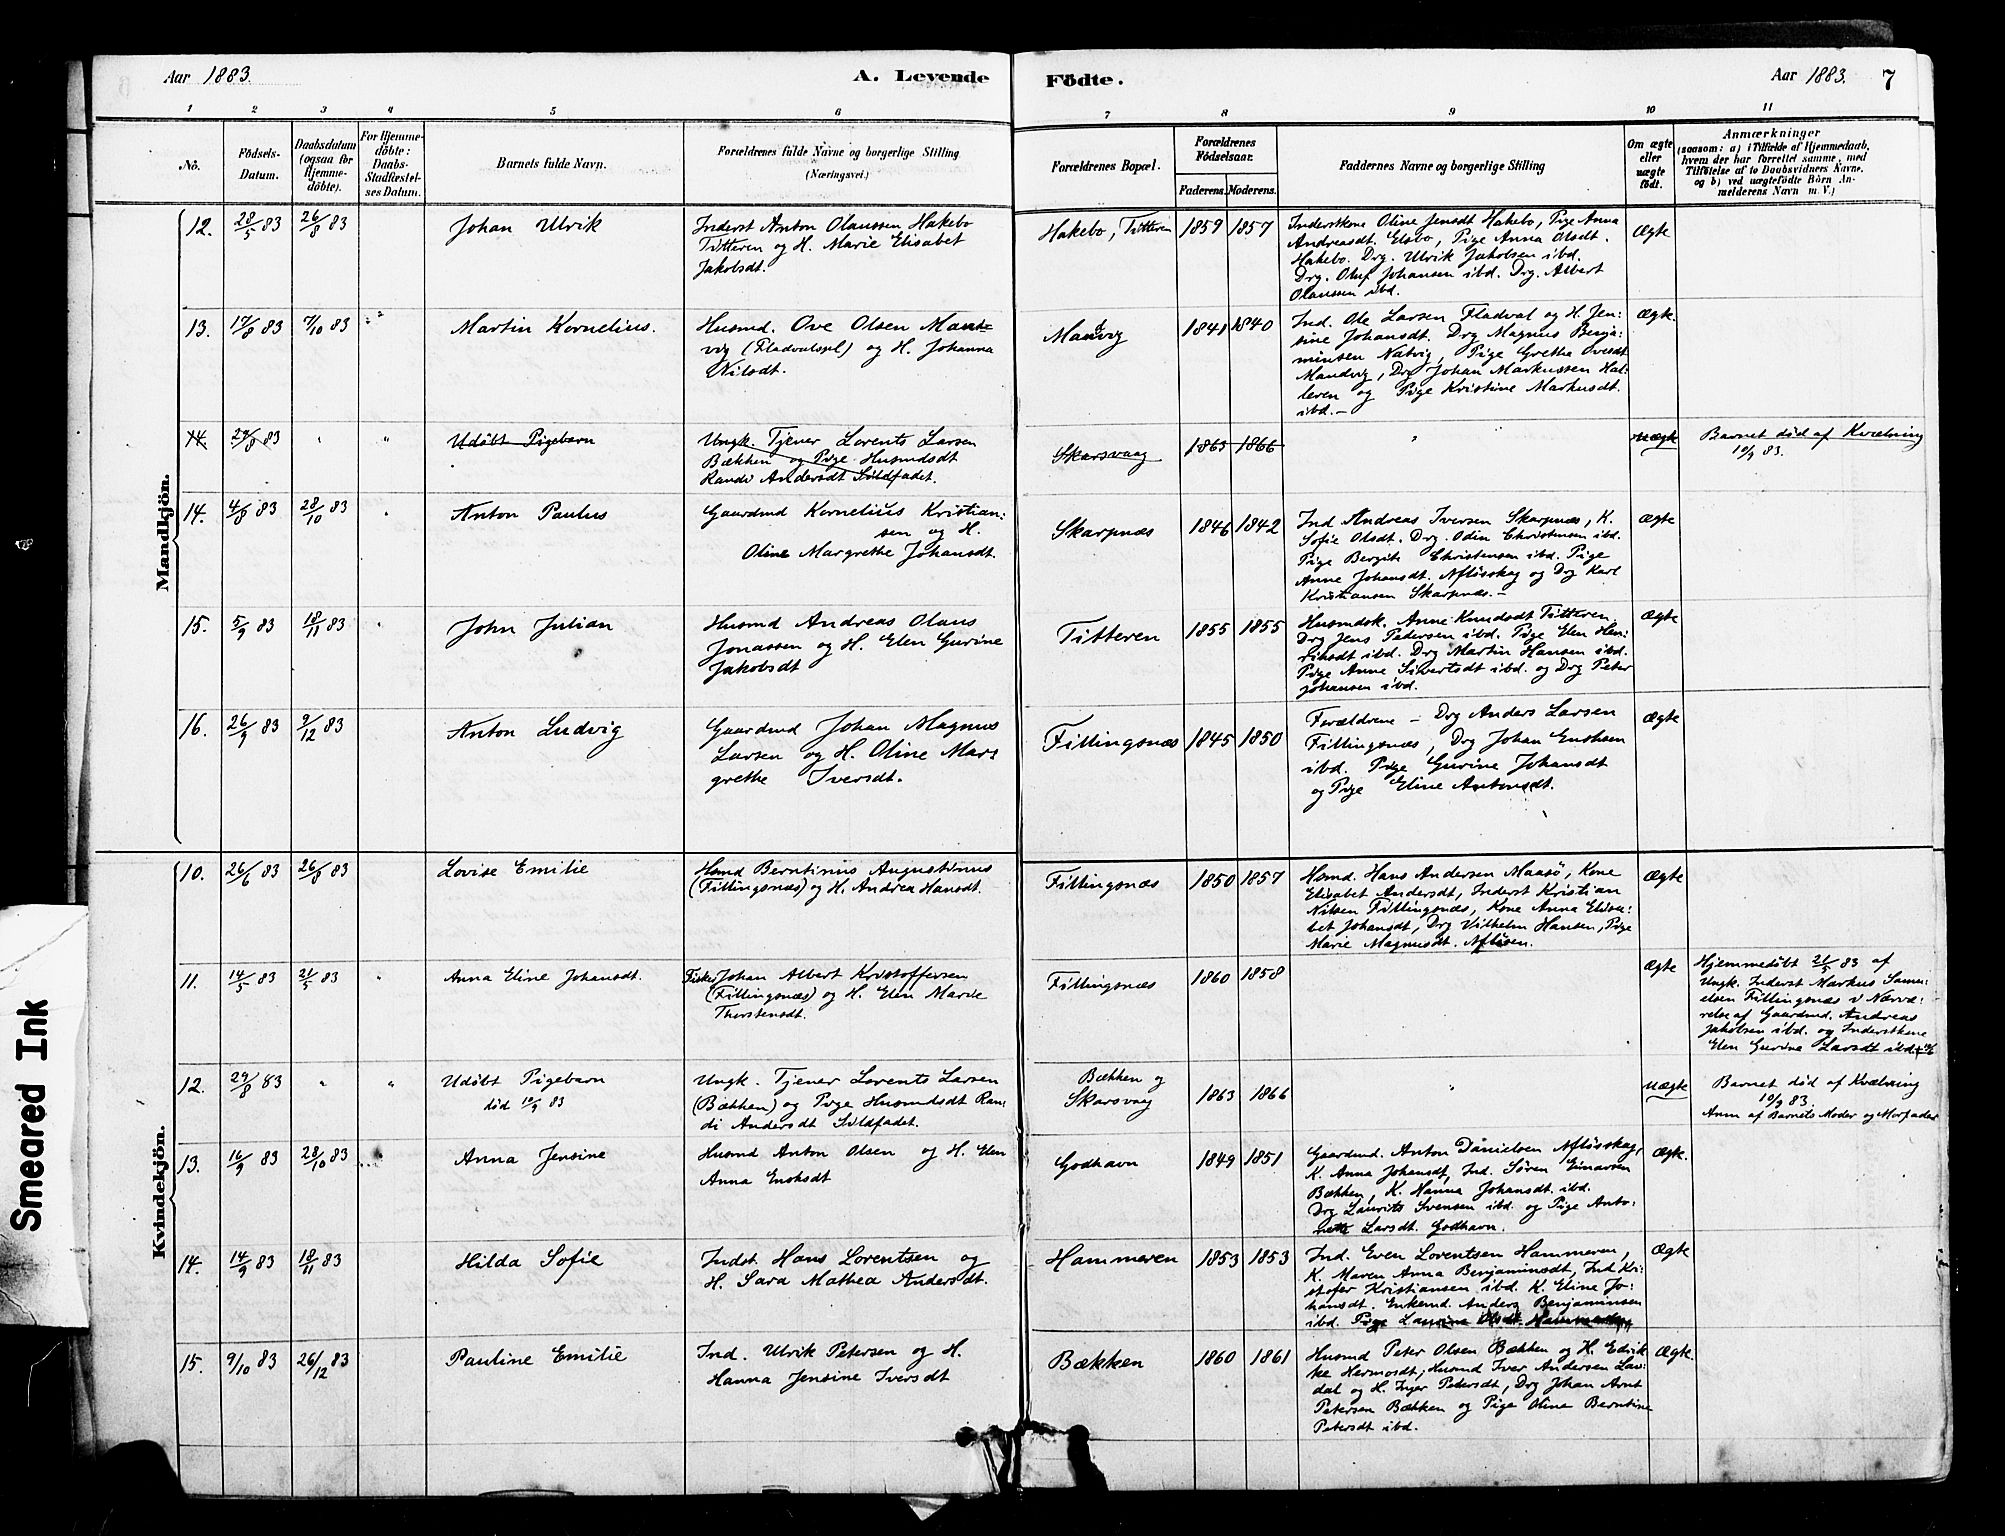 Aar 1883.
A. Levende
Födte.
Aar 1883. 7
1 2 3 4 5 6 7 8 9 10 11
No.
Födsels-
Datum.
Daabsdatum
(ogsaa for
Hjemme-
döbte).
For Hjemme-
döbte:
Daabs-
Stadfæstel-
ses Datum.
Barnets fulde Navn.
Forældrenes fulde Navne og borgerlige Stilling
(Næringsvei.)
Forældrenes Bopæl.
Forældrenes
Födselsaar.
Faderens. Moderens.
Faddernes Navne og borgerlige Stilling
Om ægte
eller
uægte
födt.
Anmærkninger
(saasom: a) i Tilfælde af Hjemmedaab,
hvem der har forrettet samme, med
Tilföielse af to Daabsvidners Navne,
og b) ved uægtefödte Börn An-
melderens Navn m. V.)
Mandkjön.
12. 28/5 83 26/8 83 Johan Ulrik
Inderst Anton Olaussen Hakebo
Titteren og H. Marie Elisabet
Jakobsdt.
Hakebo, Titteren 1859 1857
Inderstkone Oline Jensdt Hakebo, Pige Anna
Andreasdt. Elsbo, Pige Anna Olsdt.
Hakebo. Drg. Ulrik Jakobsen ibd.
Drg. Oluf Johansen ibd. Drg. Albert
Olaussen ibd.
Ægte
13. 17/8 83 7/10 83 Martin Kornelius.
Husmd. Ove Olsen Mand-
vig (Fladvalspl) og H. Johanna
Nilsdt.
Mandvig 1841 1840
Ind. Ole Larsen Fladval og H. Jen-
sine Johansdt. Drg Magnus Benja-
minsen Natvig, Pige Gretha Ovesdt
Mandvig, Drg Johan Markussen Hal-
leren og Pige Kristine Markusdt.
ibd.—
Ægte.
14. 29/8 83 " " Udöbt Pigebarn
Ungk. Tjener Lorents Larsen
Bækken og Pige Husmdsdt
Randi Andersdt Sildfadet.
Skarsvaag 1863 1866
"
uægte
Barnet död af Kvælning
10/9 83.
14. 4/8 83 28/10 83 Anton Paulus
Gaardmd Kornelius Kristian-
sen og H.
Oline Margrethe Johansdt.
Skarpnæs 1846 1842
Ind Andreas Iversen Skarpnæs, K.
Sofie Olsdt. Drg. Odin Christensen ibd.
Pige Bergit Christensen ibd. Pige
Anne Johansdt. Aflösskag og Drg Karl
Kristiansen Skarpnæs.—
Ægte
15. 5/9 83 18/11 83 John Julian
Husmd Andreas Olaus
Jonassen og H. Elen Gurine
Jakobsdt
Titteren 1855 1855
Husmdsk. Anne Knudsdt Titteren,
Drg Jens Pedersen ibd. Pige Elen Hen-
riksdt ibd. Drg Martin Hansen ibd.
Pige Anne Sivertsdt ibd. og Drg Peter
Johansen ibd.
Ægte
16. 26/9 83 9/12 83 Anton Ludvig
Gaardmd Johan Magnus
Larsen og H. Oline Mar-
grethe Iversdt.
Fillingsnæs 1845 1850
Forældrene — Drg Anders Larsen
Fillingsnæs, Drg Johan Enoksen
ibd. Pige Gurine Johansdt
og Pige Eline Antonsdt.
Ægte
Kvindekjön.
10. 26/6 83 26/8 83 Lovise Emilie
Hsmd Berntinus Augustinus
(Fillingsnæs) og H. Andrea Hansdt.
Fillingsnæs 1850 1857
Hsmd. Hans Andersen Maasö, Kone
Elisabet Andersdt, Inderst Kristian
Nilsen Fillingsnæs, Kone Anna Elisa-
bet Johansdt, Drg Vilhelm Hansen, Pige
Marie Magnusdt. Aflösen.
Ægte
11. 14/5 83 21/5 83 " Anna Eline Johansdt.
Fisker Johan Albert Kristoffersen
(Fillingsnæs) og H. Elen Marie
Thorstensdt.
Fillingsnæs 1860 1858
Ægte
Hjemmedöbt 21/5 83 af
Ungk. Inderst Markus Samu-
elsen Fillingsnæs v Nærvæ-
relse af Gaardmd. Andreas
Jakobsen ibd. og Inderstkone
Elen Gurine Larsdt ibd.
12. 29/8 83 " " Udöbt Pigebarn
död 10/9 83
Ungk. Tjener Lorents Larsen
(Bækken) og Pige Husmdsdt Ran-
di Andersdt Sildfadet.
Bækken og
Skarsvaag 1863 1866
"
Uægte
Barnet död af Kvælning
10/9 83.
Anm af Barnets Moder og Morfader
13. 16/9 83 28/10 83 Anna Jensine
Husmd Anton Olsen og H. Elen
Anna Enoksdt
Godhavn 1849 1851
Gaardmd. Anton Danielsen Aflösskag,
K. Anna Johansdt, Ind. Sören Einarsen
Bækken, K. Hanna Johansdt. ibd.
Drg Laurits Svensen ibd. og Pige Anto-
nette Larsdt. Godhavn.
Ægte.
14. 14/9 83 18/11 83 Hilda Sofie
Indst Hans Lorentsen og
H. Sara Mathea Andersdt.
Hammeren 1853 1853
Ind. Even Lorentsen Hammeren,
K. Maren Anna Benjaminsdt, Ind. Kri-
stofer Kristiansen ibd. K. Eline Jo-
hansdt. Enkemd. Anders Benjaminsen
ibd. Pige Laurine Olsdt. Hammeren
Ægte
15. 9/10 83 26/12 83 Pauline Emilie
Ind. Ulrik Petersen og H.
Hanna Jensine Iversdt
Bækken 1860 1861
Husmd Peter Olsen Bækken og H. Edrik-
ke Hermosdt, Husmd Iver Andersen Lav-
dal og H. Inger Petersdt, Drg Johan Arnt
Petersen Bækken og Pige Oline Berntine
Petersdt ibd.
Ægte.
Smeared Ink